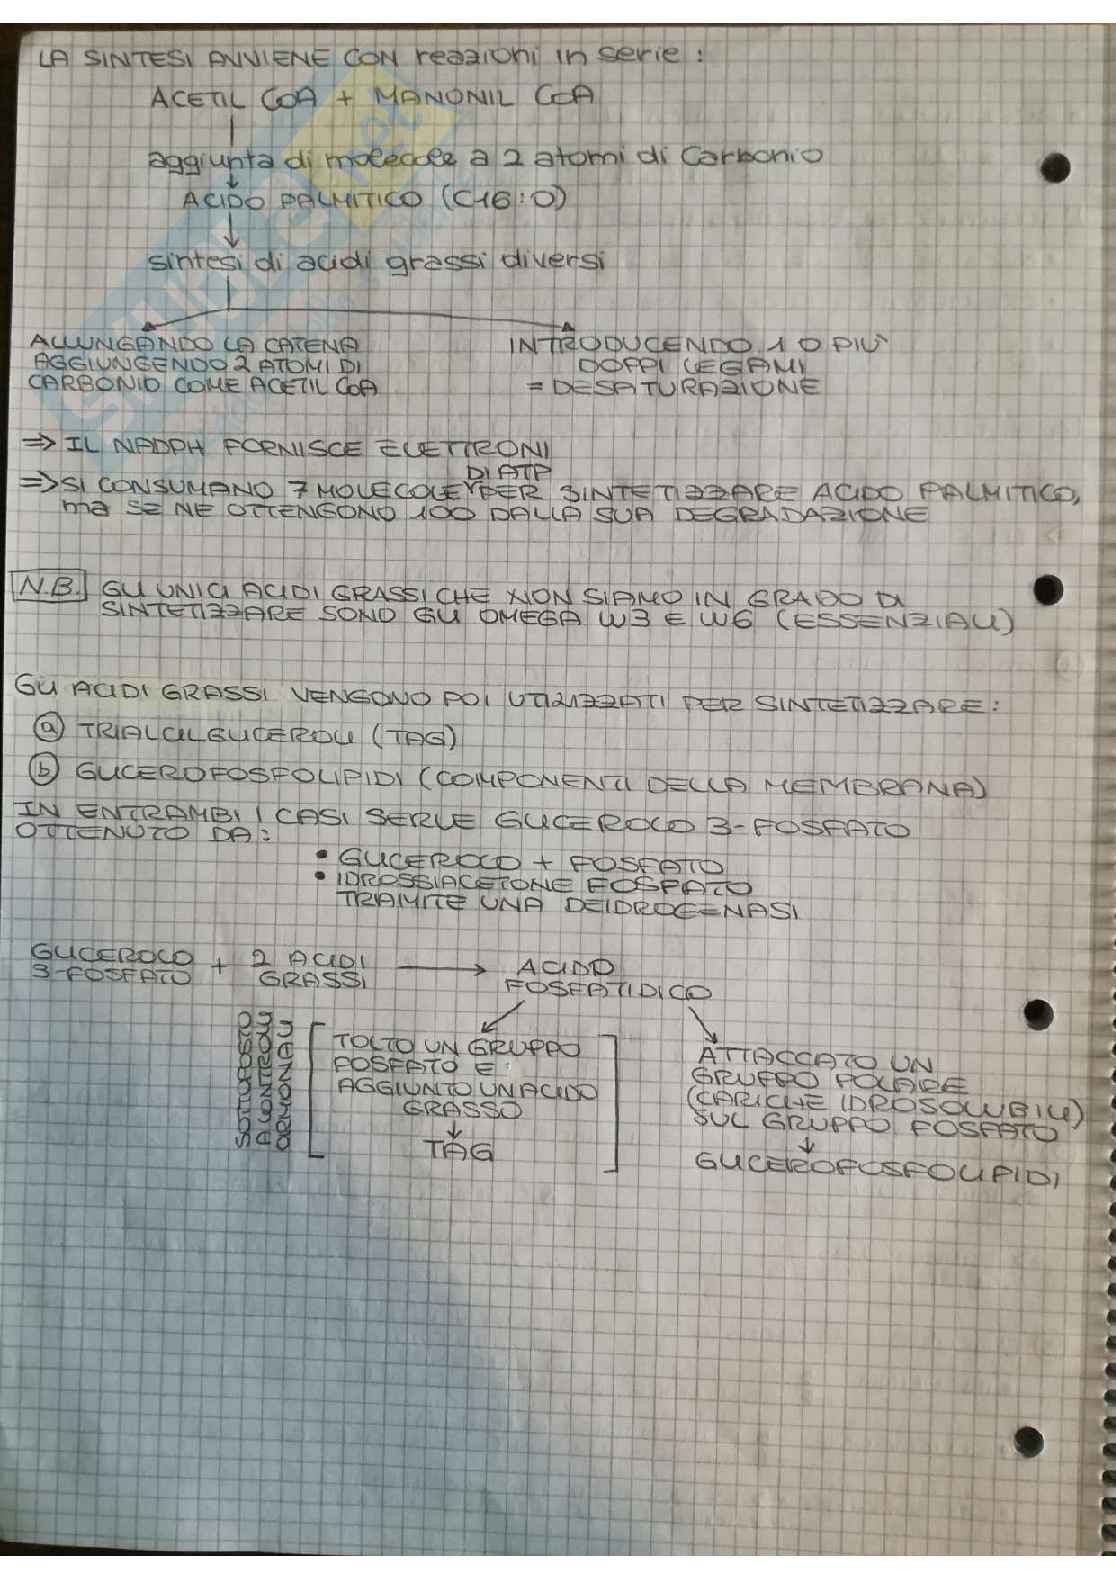 LA SINTESI AVVIENE CON reazioni in serie :
ACETIL CoA + MANONIL CoA
aggiunta di molecole a 2 atomi di Carbonio
ACIDO PALMITICO (C16:0)
sintesi di acidi grassi diversi
ALLUNGANDO LA CATENA
AGGIUNGENDO 2 ATOMI DI
CARBONIO COME ACETIL CoA
INTRODUCENDO 1 O PIÙ
DOPPI LEGAMI
= DESATURAZIONE
⇒ IL NADPH FORNISCE ELETTRONI
DI ATP
⇒ SI CONSUMANO 7 MOLECOLE PER SINTETIZZARE ACIDO PALMITICO,
ma SE NE OTTENGONO 100 DALLA SUA DEGRADAZIONE
N.B. GLI UNICI ACIDI GRASSI CHE NON SIAMO IN GRADO DI
SINTETIZZARE SONO GLI OMEGA W3 E W6 (ESSENZIALI)
GLI ACIDI GRASSI VENGONO POI UTILIZZATI PER SINTETIZZARE:
ⓐ TRIALCILGLICEROLI (TAG)
ⓑ GLICEROFOSFOLIPIDI (COMPONENTI DELLA MEMBRANA)
IN ENTRAMBI I CASI SERVE GLICEROLO 3-FOSFATO
OTTENUTO DA:
• GLICEROLO + FOSFATO
• IDROSSIACETONE FOSFATO
TRAMITE UNA DEIDROGENASI
GLICEROLO
3-FOSFATO + 2 ACIDI
GRASSI → ACIDO
FOSFATIDICO
SOTTOPOSTO
A CONTROLLI
ORMONALI
TOLTO UN GRUPPO
FOSFATO E
AGGIUNTO UN ACIDO
GRASSO
↓
TAG
ATTACCATO UN
GRUPPO POLARE
(CARICHE IDROSOLUBILI)
SUL GRUPPO FOSFATO
↓
GLICEROFOSFOLIPIDI